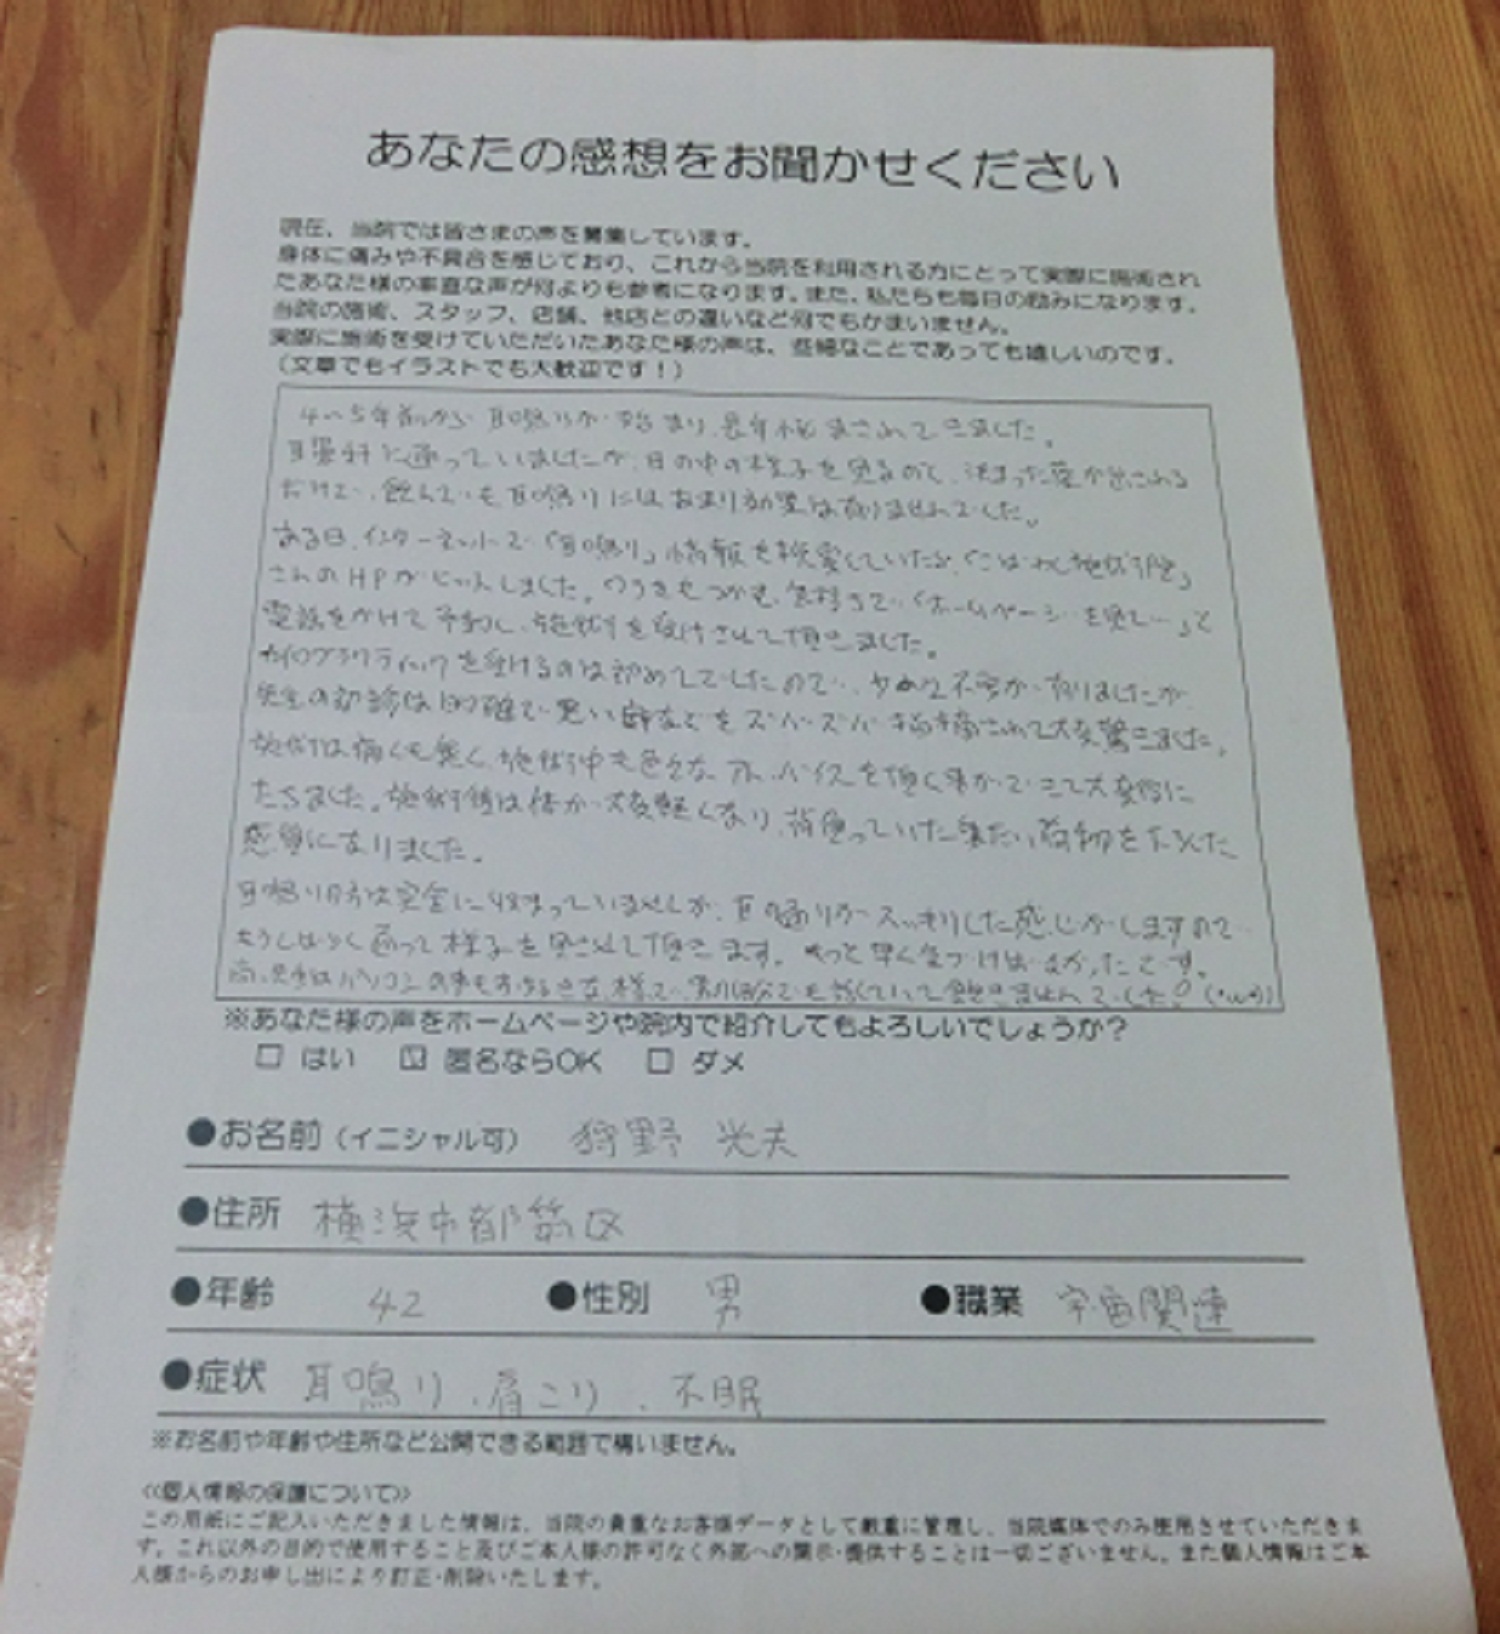 あなたの感想をお聞かせください
現在、当院では皆さまの声を募集しています。
身体に痛みや不具合を感じており、これから当院を利用される方にとって実際に施術され
たあなた様の率直な声が何よりも参考になります。また、私たちも毎日の励みになります。
当院の施術、スタッフ、店舗、他店との違いなど何でもかまいません。
実際に施術を受けていただいたあなた様の声は、些細なことであっても嬉しいのです。
（文章でもイラストでも大歓迎です！）
4〜5年前から耳鳴りが始まり、長年悩まされてきました。
耳鼻科に通っていましたが、目の中の様子を見るのと、決まった薬が出される
だけで、飲んでいも耳鳴りにはあまり効果は有りませんでした。
ある日、インターネットで「耳鳴り」情報を検索していたら、「こばやし施術院」
さんのHPがヒットしました。わらをもつかむ気持ちで「ホームページを見て…」と
電話をかけて予約し、施術を受けさせて頂きました。
カイロプラクティックを受けるのは初めてでしたので、少々不安が有りましたが
先生の初診は的確で悪い部などをズバズバ指摘されて大変驚きました。
施術は痛くも無く、施術中も色々なアドバイスを頂く事ができて大変役に
たちました。施術後は体が大変軽くなり、背負っていた重たい荷物をおろした
感覚になりました。
耳鳴りの方は完全に収まっていませんが、耳の通りがスッキリした感じがしますので
もうしばらく通って様子を見させて頂きます。もっと早く気づけば良かったです。
尚、先生はパソコンの事もお好きな様で、
※あなた様の声をホームページや院内で紹介してもよろしいでしょうか？
□ はい ☑ 匿名ならOK □ ダメ
●お名前（イニシャル可） 狩野 光夫
●住所 横浜市都筑区
●年齢 42 ●性別 男 ●職業 宇宙関連
●症状 耳鳴り、肩こり、不眠
※お名前や年齢や住所など公開できる範囲で構いません。
《個人情報の保護について》
この用紙にご記入いただきました情報は、当院の貴重なお客様データとして厳重に管理し、当院媒体でのみ使用させていただきま
す。これ以外の目的で使用すること及びご本人様の許可なく外部への開示・提供することは一切ございません。また個人情報はご本
人様からのお申し出により訂正・削除いたします。